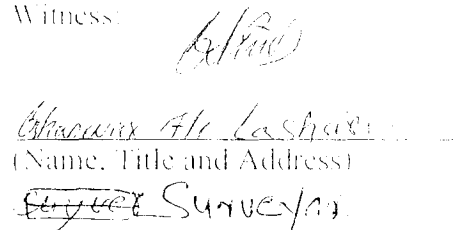 Witness:
Ali Lashari
(Name, Title and Address)
Surveyor